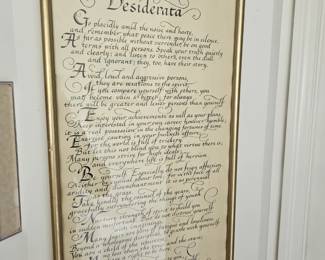 Desiderata
Go placidly amid the noise and haste,
and remember what peace there may be in silence.
As far as possible without surrender be on good
terms with all persons. Speak your truth quietly
and clearly; and listen to others, even the dull
and ignorant; they too, have their story.
Avoid loud and aggressive persons,
they are vexations to the spirit.
If you compare yourself with others, you
may become vain & bitter; for always
there will be greater and lesser persons than yourself.
Enjoy your achievements as well as your plans.
Keep interested in your own career, however humble;
it is a real possession in the changing fortunes of time.
Exercise caution in your business affairs,
for the world is full of trickery.
But let this not blind you to what virtue there is;
Many persons strive for high ideals,
and everywhere life is full of heroism.
Be yourself. Especially do not feign affection.
Neither be cynical about love, for with face of all
aridity and disenchantment it is
Take kindly the counsel of the years,
gracefully surrendering the things of youth.
Nurture strength of spirit to shield you
in sudden misfortune.
Many fears are born of fatigue and loneliness.
Beyond a wholesome discipline, be gentle with yourself.
You are a child of the universe